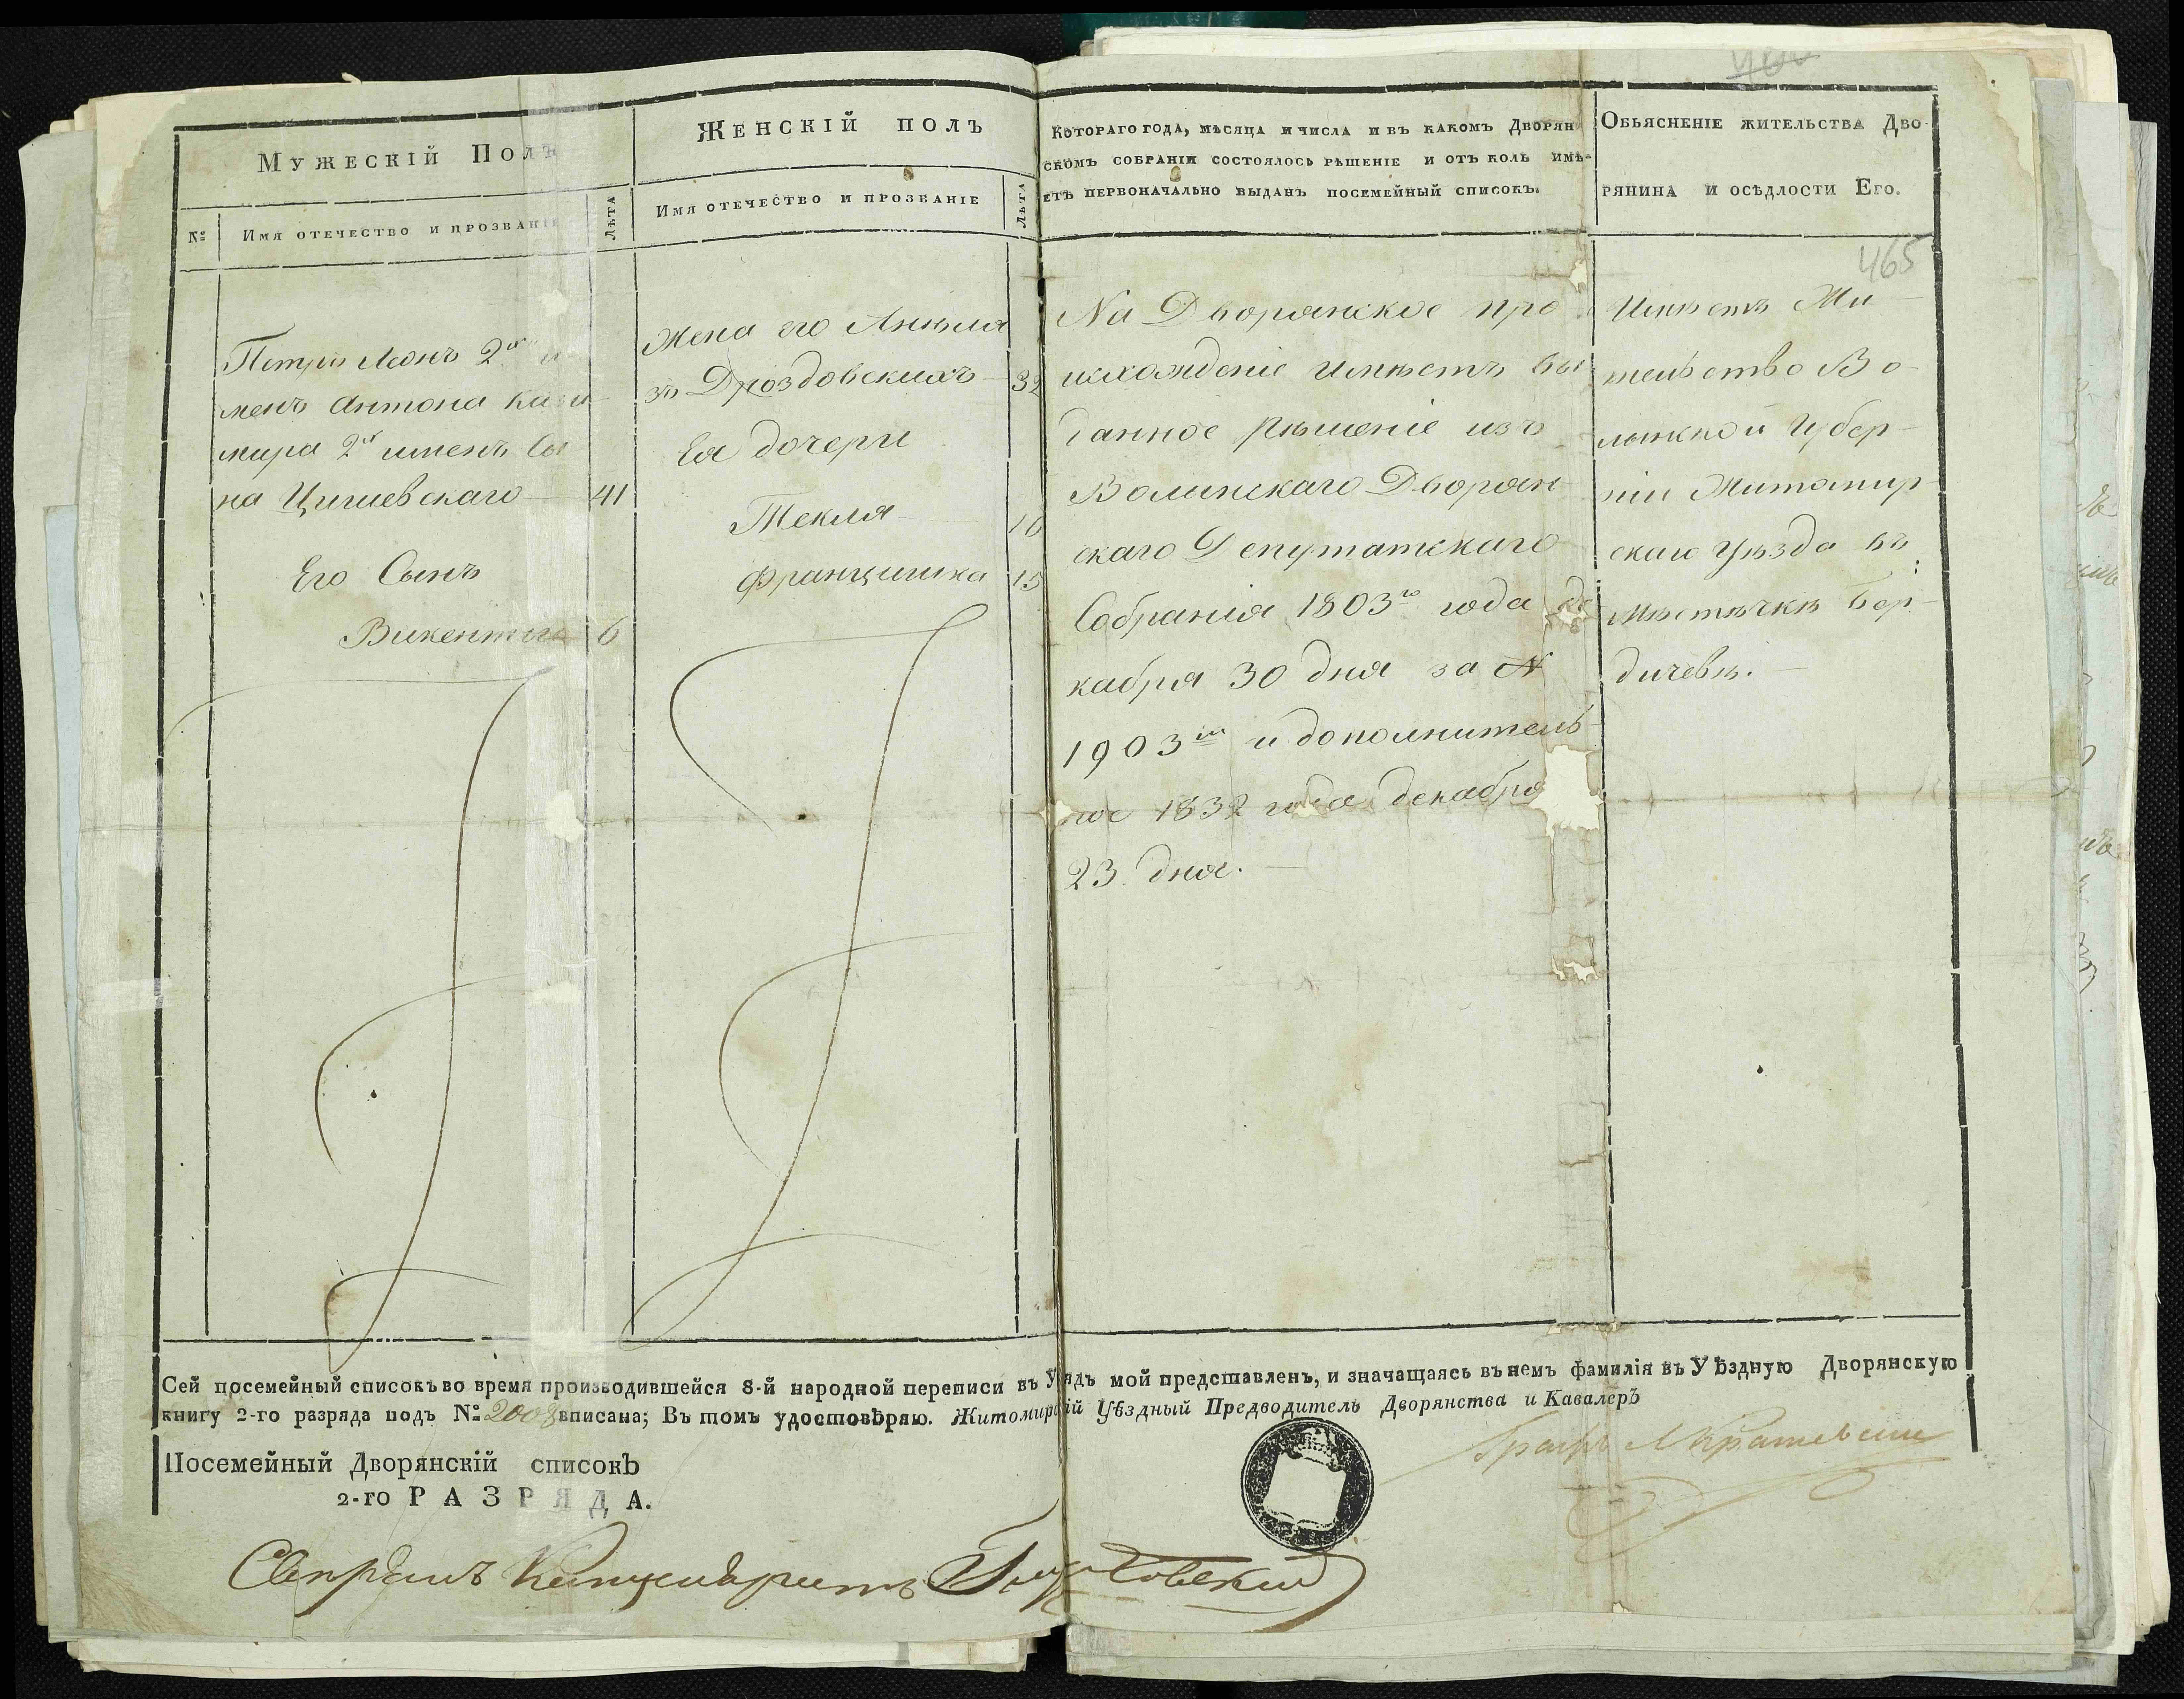 400
Мужескій Полъ
№
Имя отечество и прозваніе
Лѣта
Женскій полъ
Имя отечество и прозваніе
Лѣта
Котораго года, мѣсяца и числа и въ какомъ Дворян
скомъ собраніи состоялось рѣшеніе и отъ коль имѣ-
етъ первоначально выданъ посемейный списокъ.
Обьясненіе жительства Дво-
рянина и осѣдлости Его.
465
Петръ Леонъ 2хъ и
менъ Антона Кази-
мира 2хъ именъ Сы
на Цишевскаго — 41
Его Сынъ
Викентій 6
Жена его Анѣля
зъ Дроздовскихъ — 32
Ея дочери
Текля 16
Францишка 15
На Дворянское про
исхожденіе имѣетъ вы
данное рѣшеніе изъ
Волинскаго Дворян
скаго Депутатскаго
Собранія 1803го года де
кабря 30 дня за №
1903мъ и дополнитель
ное 1832 года декабря
23 дня. —
Имѣетъ Жи-
тельство Во-
лынской Губер-
ніи Житомир-
скаго уѣзда въ
мѣстѣчкѣ Бер-
дичевѣ. —
Сей посемейный списокъ во время производившейся 8-й народной переписи въ Урядъ мой представленъ, и значащаясь въ немъ фамилія въ Уѣздную Дворянскую
книгу 2-го разряда подъ № 2008 вписана; Въ томъ удостовѣряю. Житомирскій Уѣздный Предводитель Дворянства и Кавалеръ
Посемейный Дворянскій списокъ
2-го РАЗРЯДА.
Графъ
Свѣрялъ Канцеляристъ